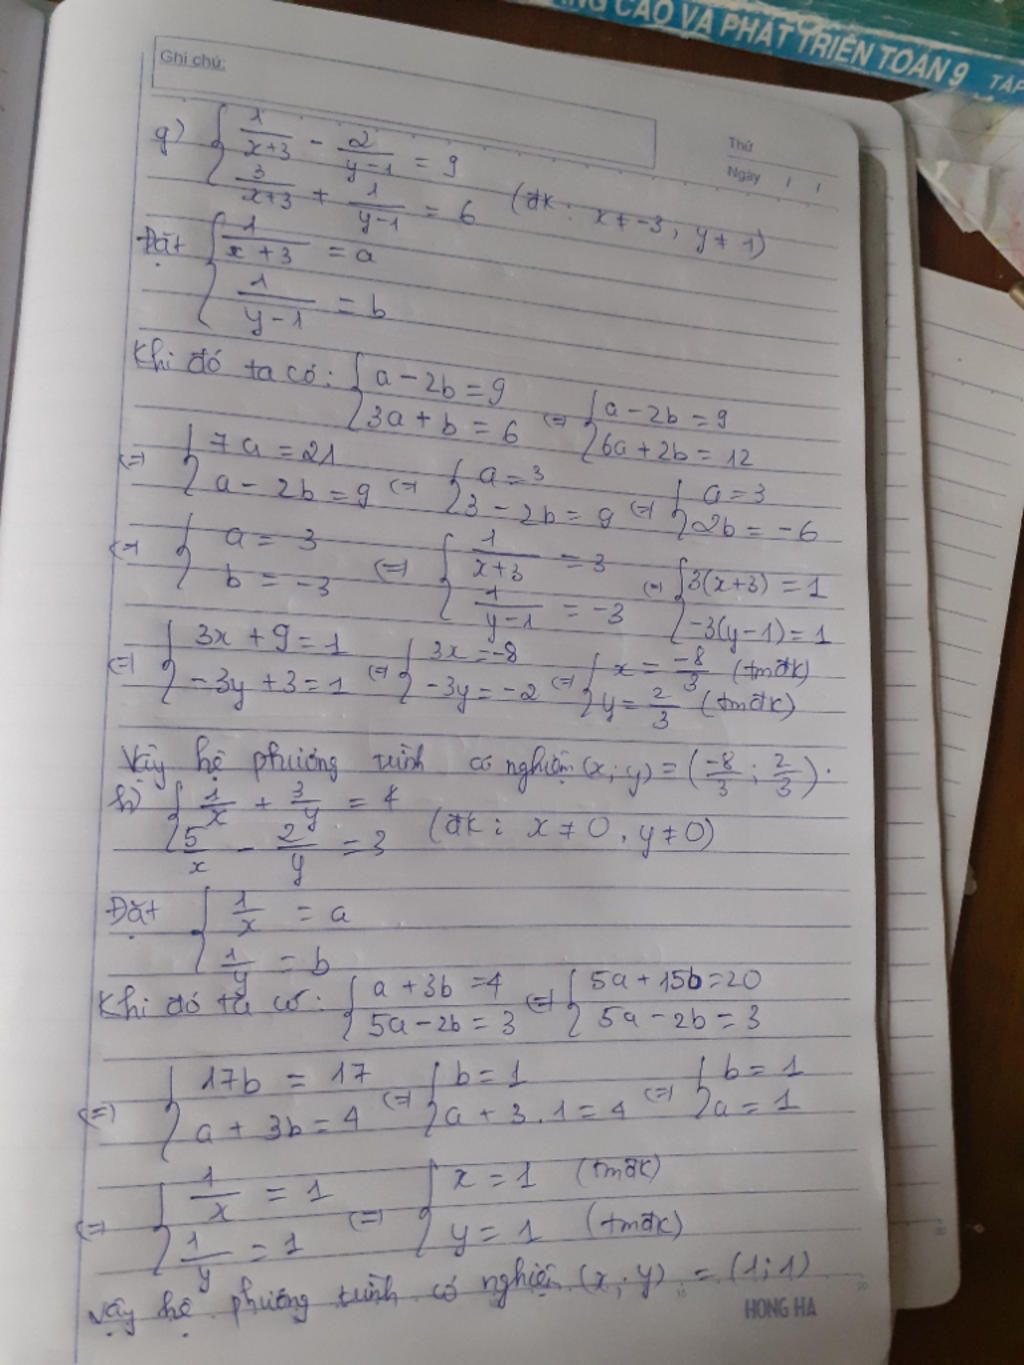 NG CAO VÀ PHÁT TRIỂN TOÁN 9 TẬP
Ghi chú:
Thứ
Ngày / /
g) { 1/(x+3) - 2/(y-1) = 9
3/(x+3) + 1/(y-1) = 6 (đk: x ≠ -3, y ≠ 1)
Đặt { 1/(x+3) = a
1/(y-1) = b
Khi đó ta có: { a - 2b = 9
3a + b = 6 (=) { a - 2b = 9
6a + 2b = 12
(=) { 7a = 21
a - 2b = 9 (=) { a = 3
3 - 2b = 9 (=) { a = 3
2b = -6
(=) { a = 3
b = -3 (=) { 1/(x+3) = 3
1/(y-1) = -3 (=) { 3(x+3) = 1
-3(y-1) = 1
(=) { 3x + 9 = 1
-3y + 3 = 1 (=) { 3x = -8
-3y = -2 (=) { x = -8/3 (tmđk)
y = 2/3 (tmđk)
Vậy hệ phương trình có nghiệm (x; y) = (-8/3; 2/3).
h) { 1/x + 3/y = 4
5/x - 2/y = 3 (đk: x ≠ 0, y ≠ 0)
Đặt { 1/x = a
1/y = b
Khi đó ta có: { a + 3b = 4
5a - 2b = 3 (=) { 5a + 15b = 20
5a - 2b = 3
(=) { 17b = 17
a + 3b = 4 (=) { b = 1
a + 3.1 = 4 (=) { b = 1
a = 1
(=) { 1/x = 1
1/y = 1 (=) { x = 1 (tmđk)
y = 1 (tmđk)
Vậy hệ phương trình có nghiệm (x, y) = (1; 1)
HONG HA